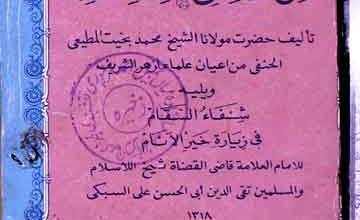 تأليف حضرت مولانا الشيخ محمد بخيت المطيعى
الحنفى من اعيان علماء ازهر الشريف
ويليه
شفاء السقام
فى زيارة خير الانام
للامام العلامة قاضى القضاة شيخ الاسلام
والمسلمين تقى الدين ابى الحسن على السبكى
١٣١٨